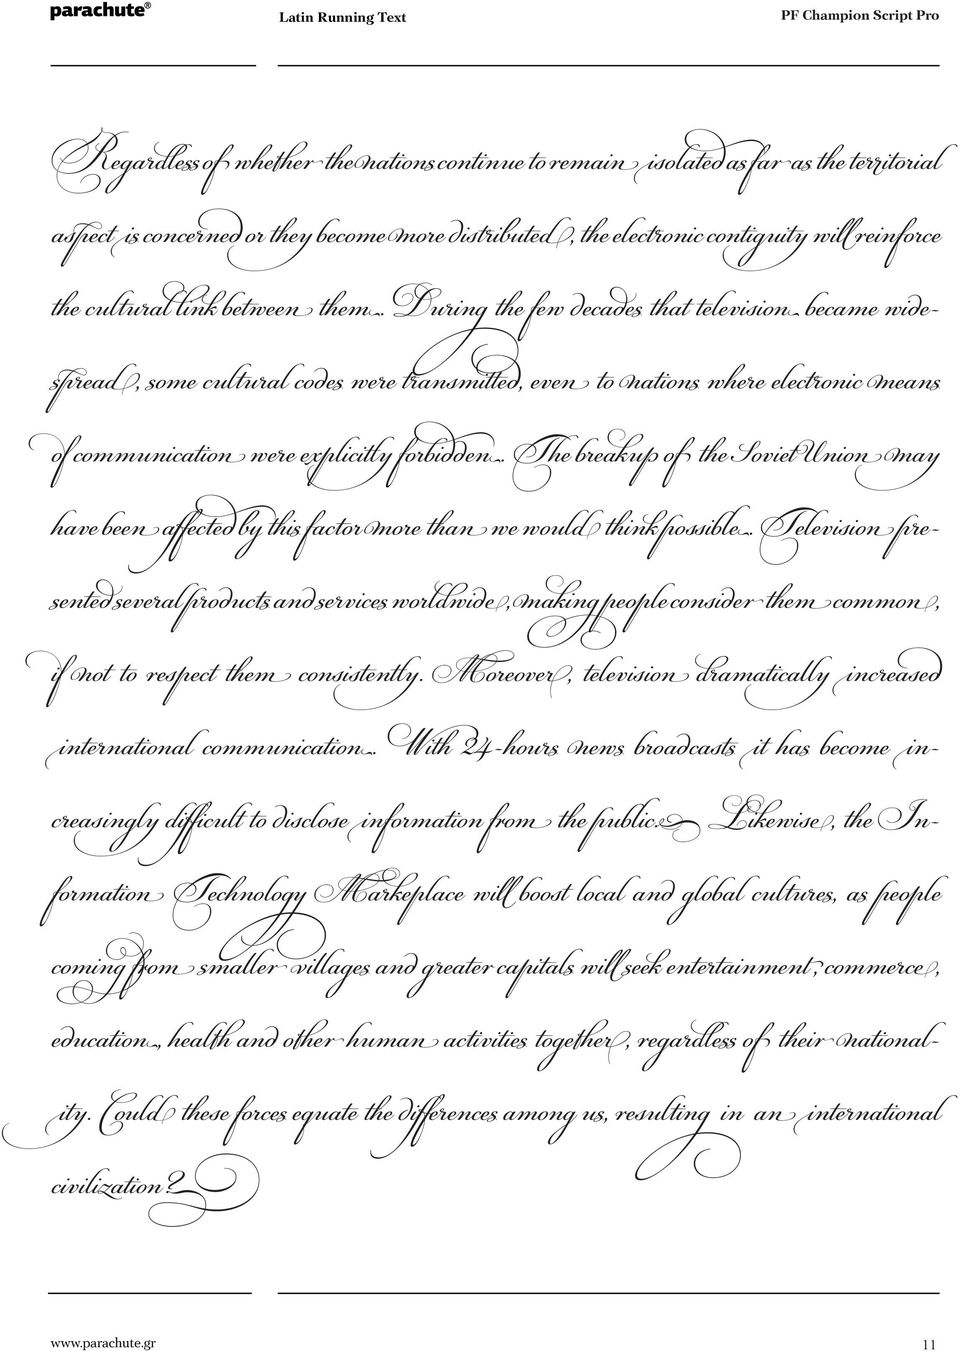 parachute®
Latin Running Text
PF Champion Script Pro
Regardless of whether the nations continue to remain isolated as far as the territorial
aspect is concerned or they become more distributed, the electronic contiguity will reinforce
the cultural link between them. During the few decades that television became wide-
spread, some cultural codes were transmitted, even to nations where electronic means
of communication were explicitly forbidden. The breakup of the Soviet Union may
have been affected by this factor more than we would think possible. Television pre-
sented several products and services worldwide, making people consider them common,
if not to respect them consistently. Moreover, television dramatically increased
international communication. With 24-hours news broadcasts it has become in-
creasingly difficult to disclose information from the public. Likewise, the In-
formation Technology Markeplace will boost local and global cultures, as people
coming from smaller villages and greater capitals will seek entertainment, commerce,
education, health and other human activities together, regardless of their national-
ity. Could these forces equate the differences among us, resulting in an international
civilization?
www.parachute.gr
11